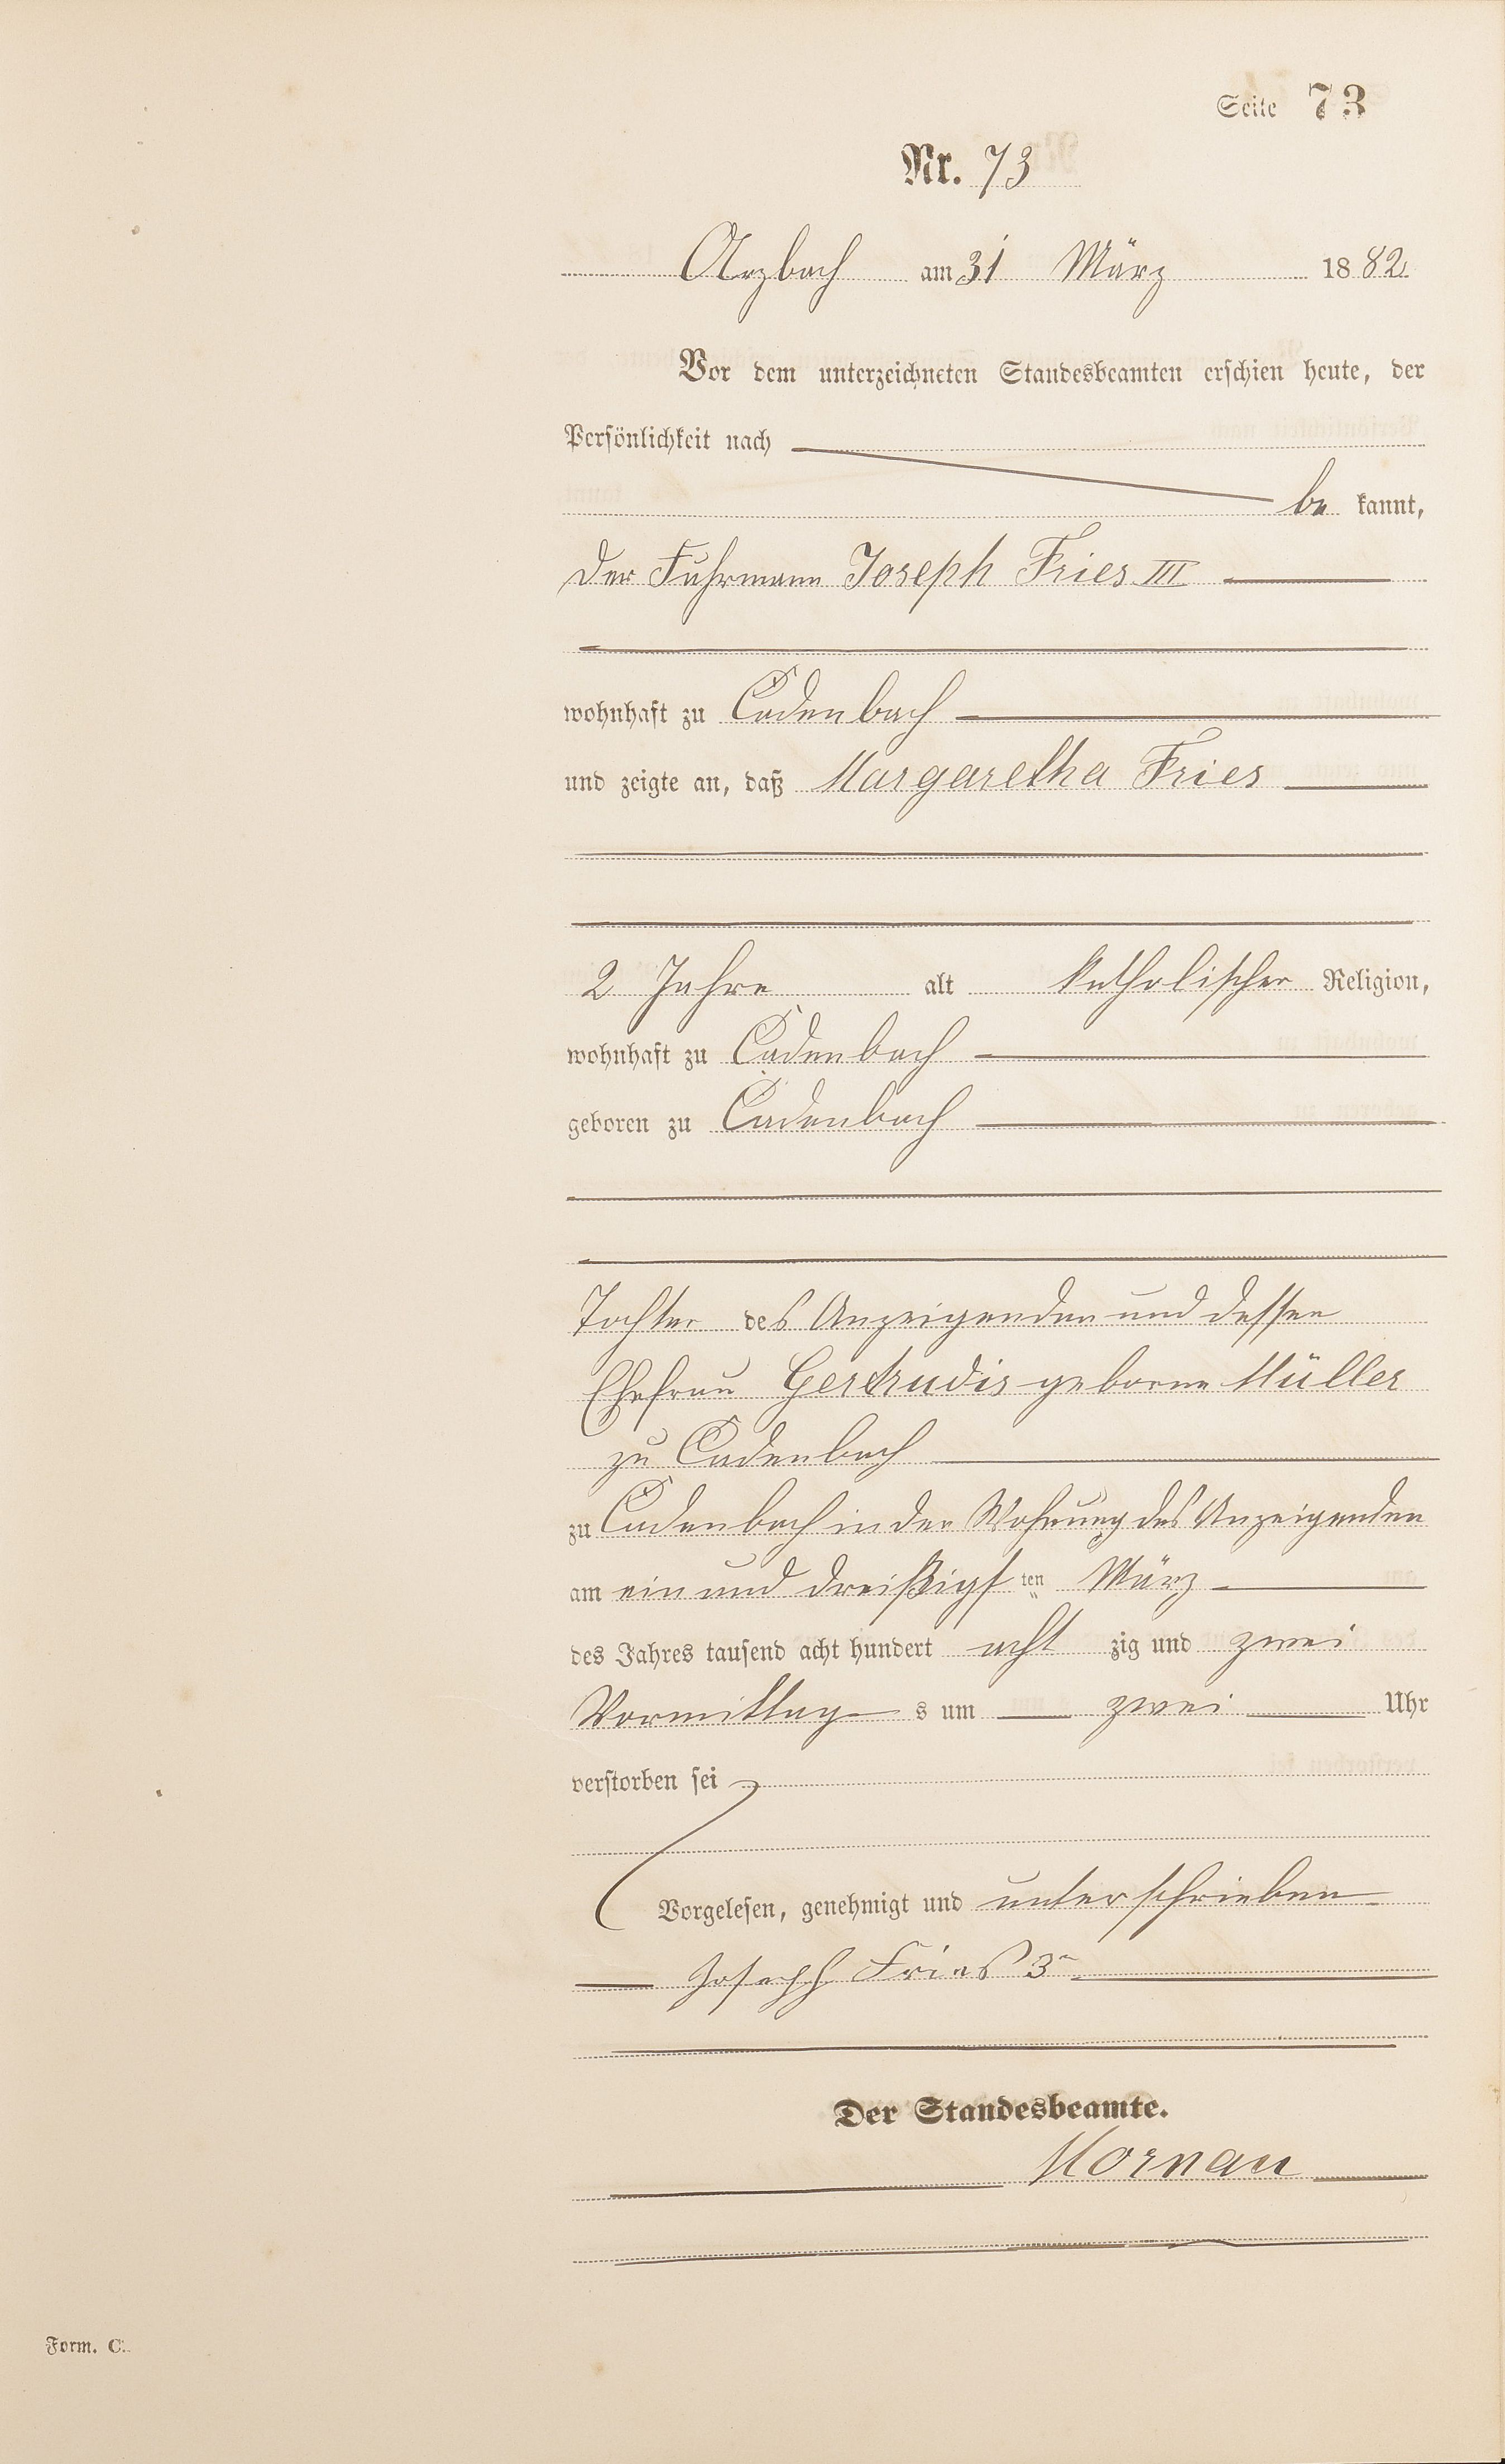 Seite 73
Nr. 73
Arzbach am 31 März 1882
Vor dem unterzeichneten Standesbeamten erschien heute, der
Persönlichkeit nach
be kannt,
der Fuhrmann Joseph Fries III
wohnhaft zu Cadenbach
und zeigte an, daß Margaretha Fries
2 Jahre alt katholischer Religion,
wohnhaft zu Cadenbach
geboren zu Cadenbach
Tochter des Anzeigenden und dessen
Ehefrau Gertrudis geborne Müller
zu Cadenbach
zu Cadenbach in der Wohnung des Anzeigenden
am ein und dreißigsten März
des Jahres tausend acht hundert acht zig und zwei
Vormittag s um zwei Uhr
verstorben sei
Vorgelesen, genehmigt und unterschrieben
Joseph Fries 3r
Der Standesbeamte.
Mornau
Form. C.